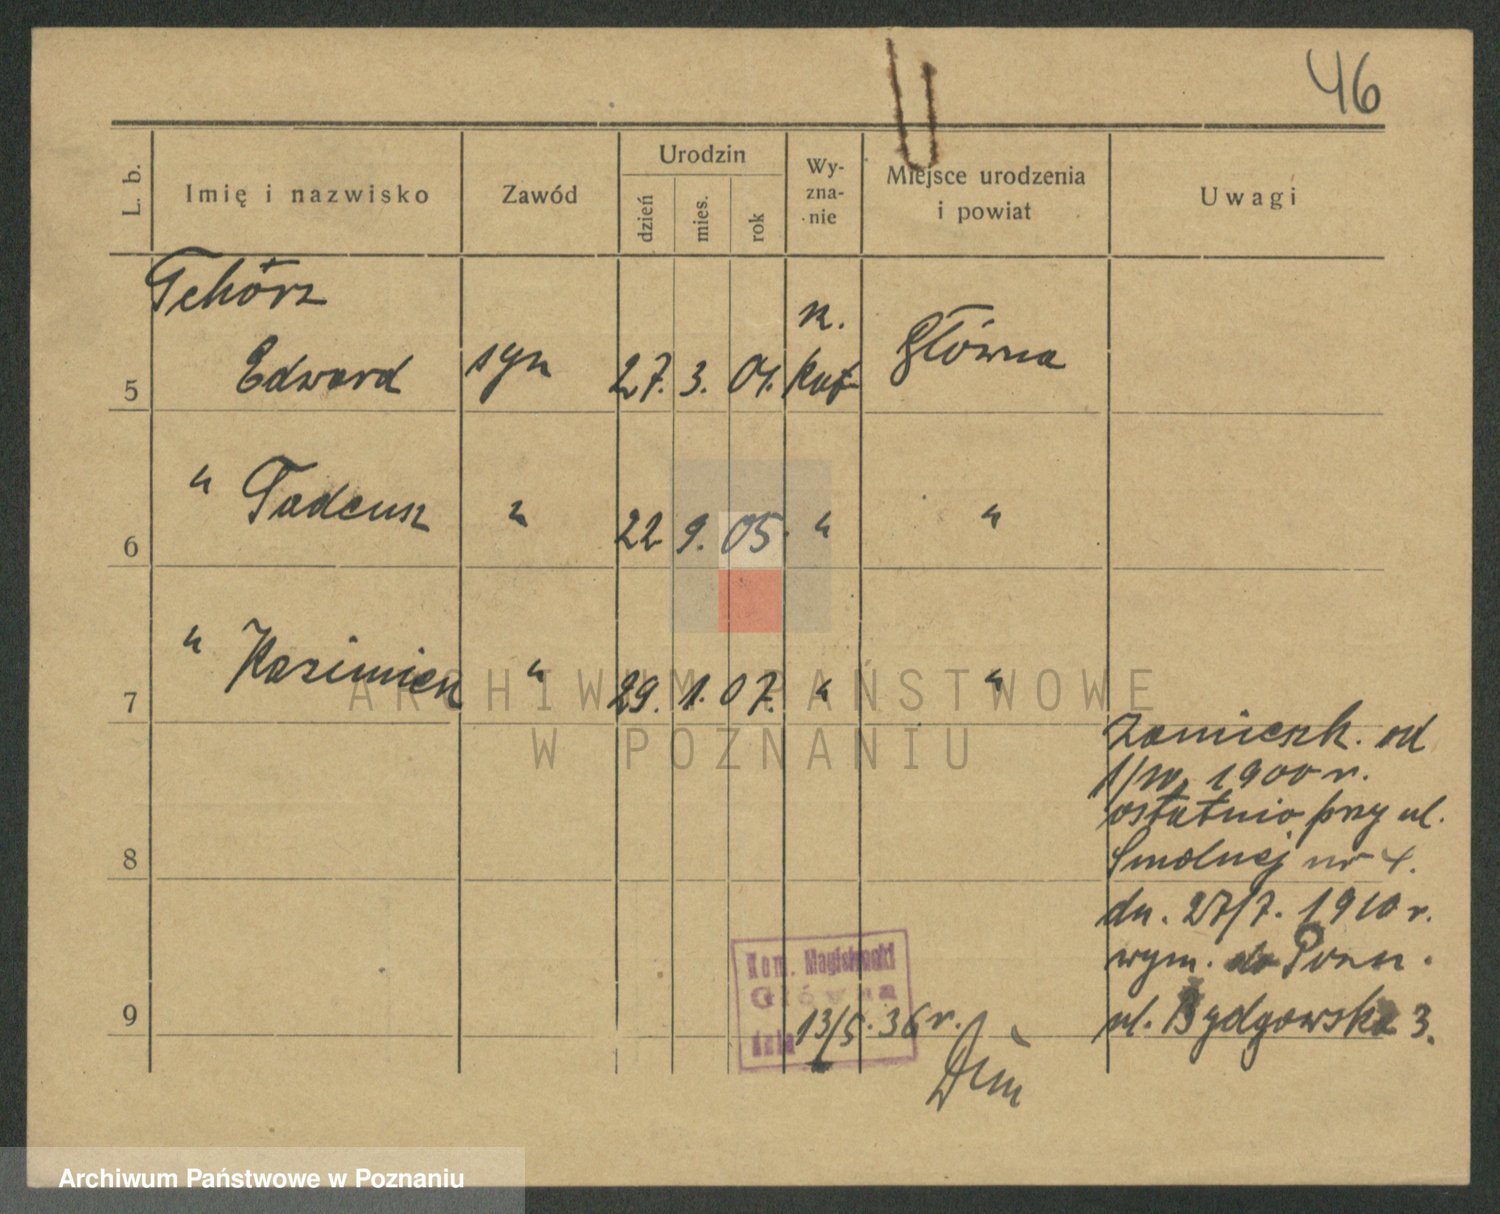 46
L. b.
Imię i nazwisko
Zawód
Urodzin
dzień
mies.
rok
Wy-
zna-
nie
Miejsce urodzenia
i powiat
Uwagi
Tchórz
5 Edward syn 27. 3. 04. rz. kat. Główna
6 " Tadeusz " 22 9. 05. " "
7 " Kazimierz " 29. 1. 07. " "
8
9
zamieszk. od
1/IV. 1900 r.
ostatnio przy ul.
Smolnej nr 4.
dn. 27/7. 1910 r.
wym. do Pozn.
ul. Bydgowska 3.
Kom. Magistracki
Główna
dnia 13/5. 36 r.
ARCHIWUM PAŃSTWOWE
W POZNANIU
Archiwum Państwowe w Poznaniu